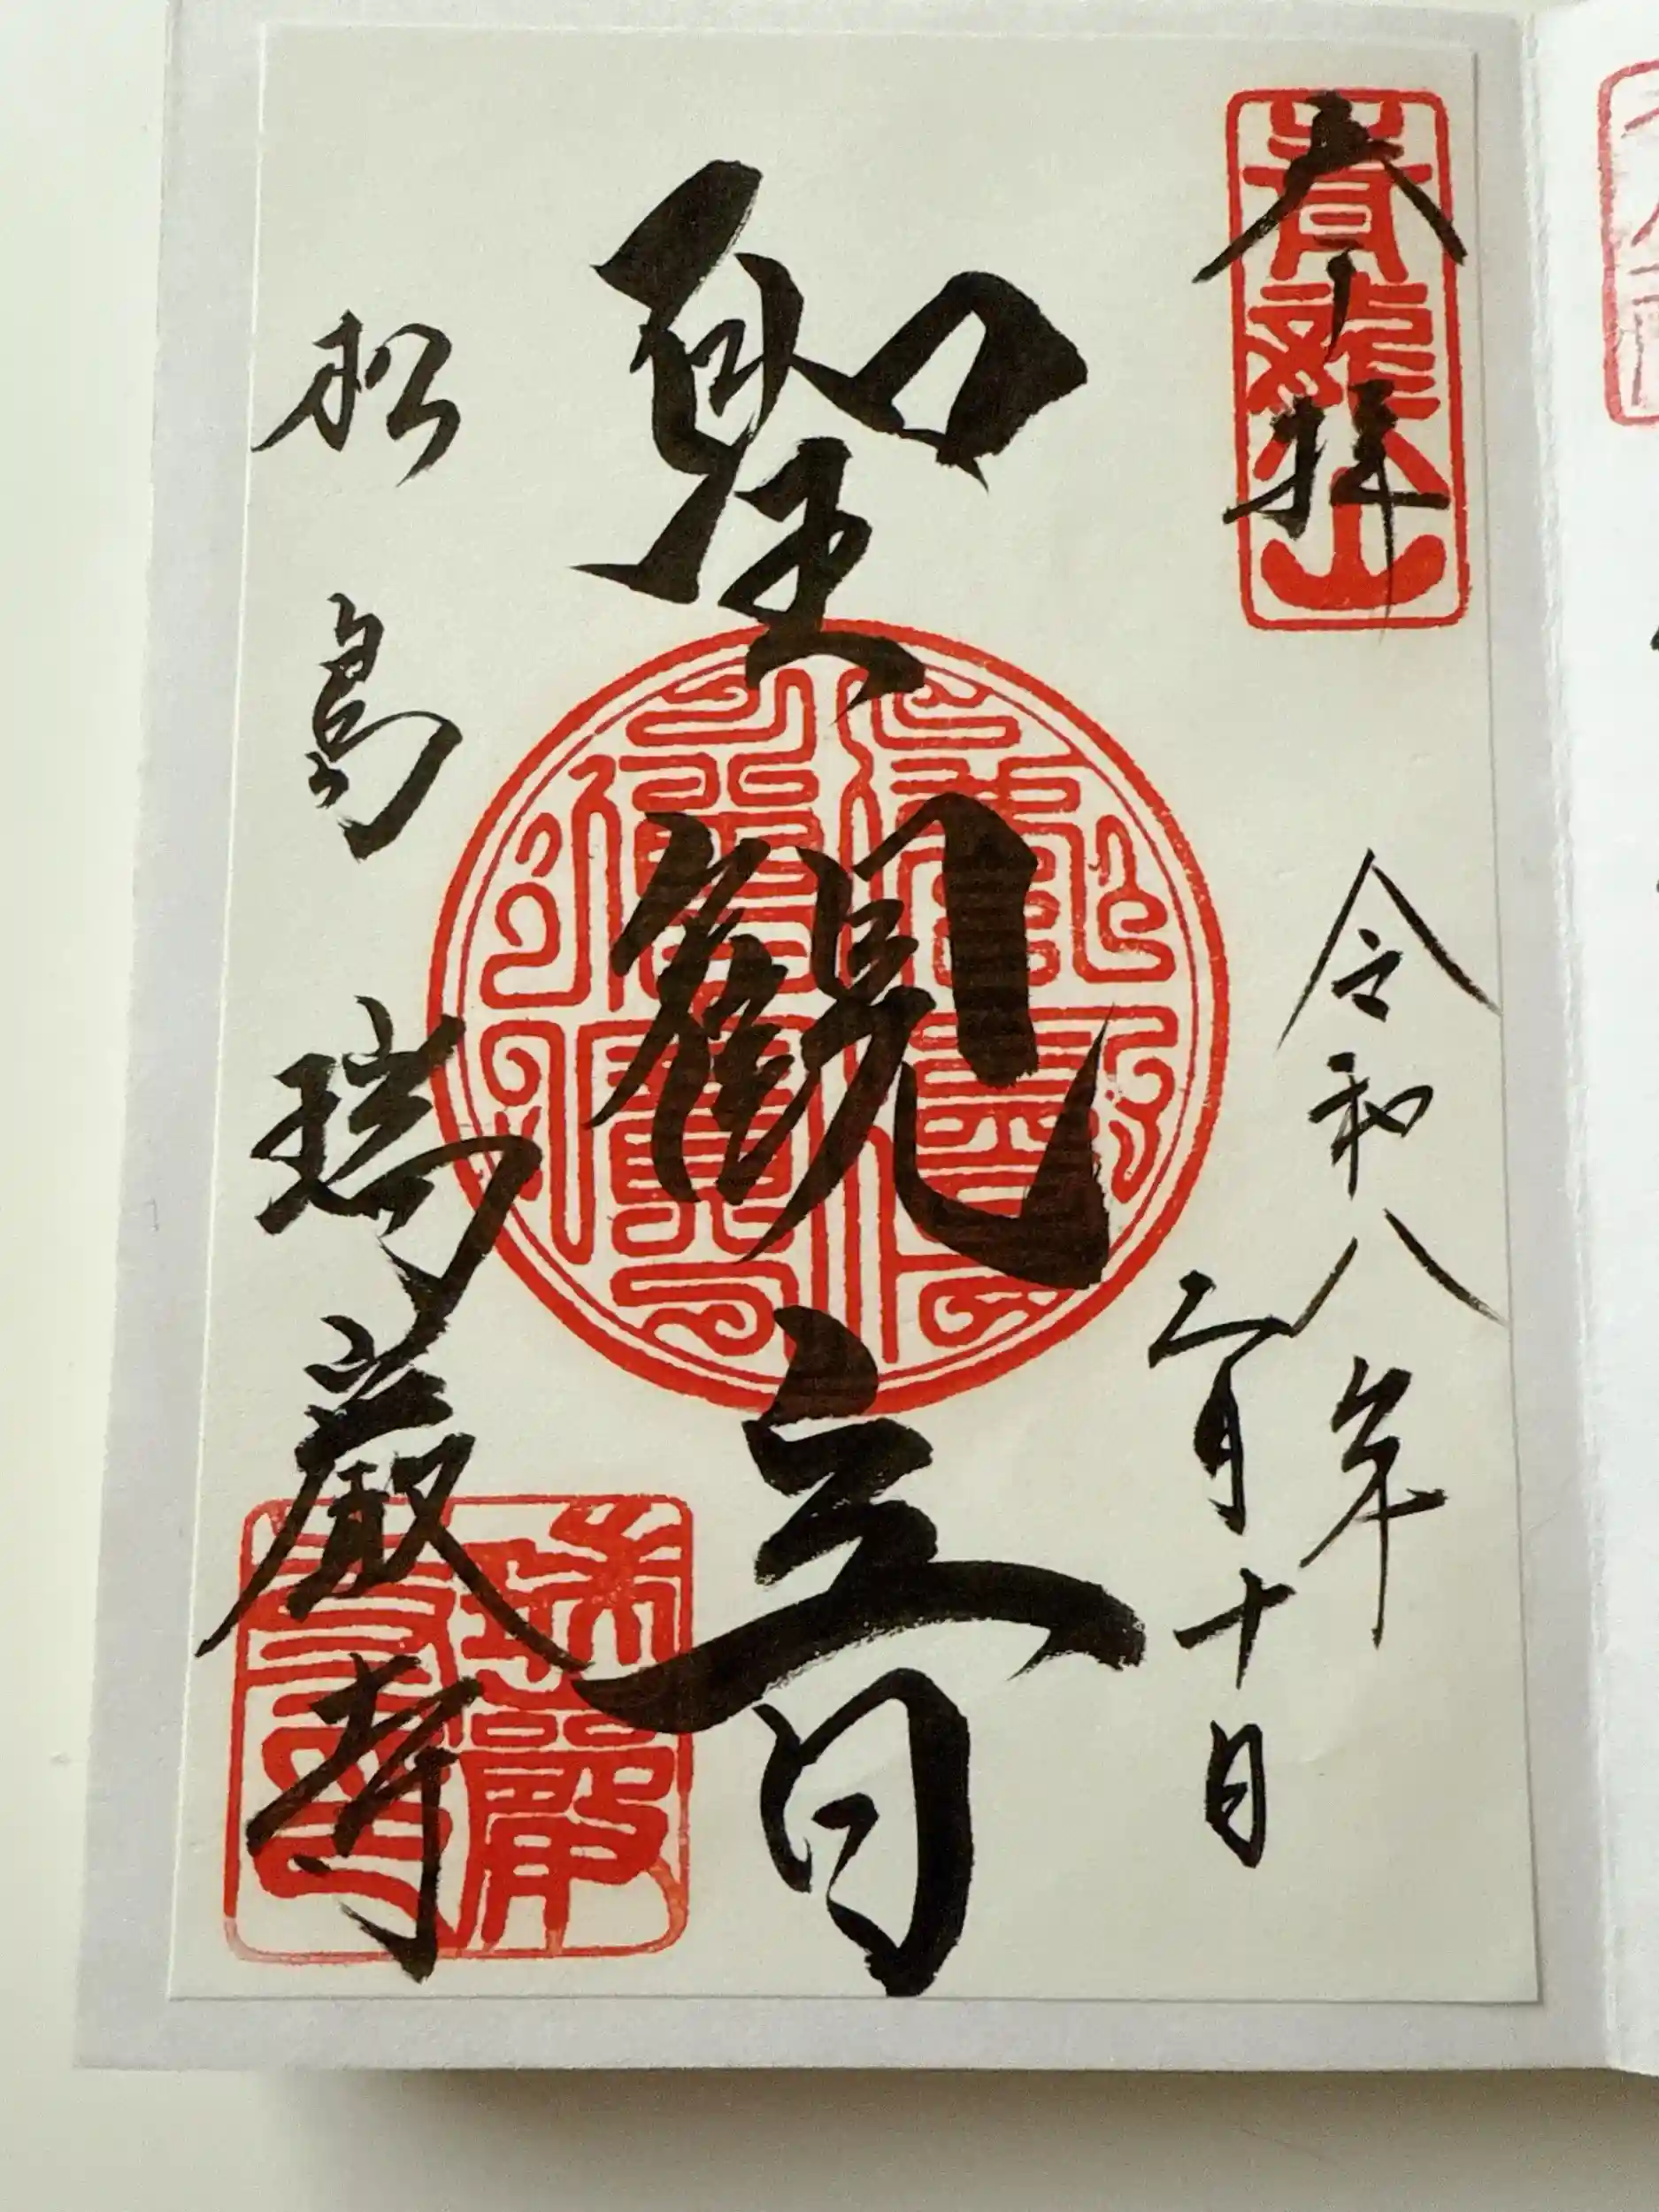 奉拝
青龍山
令和八年
二月十日
聖観音
松島 瑞巌寺
瑞巖
寺印